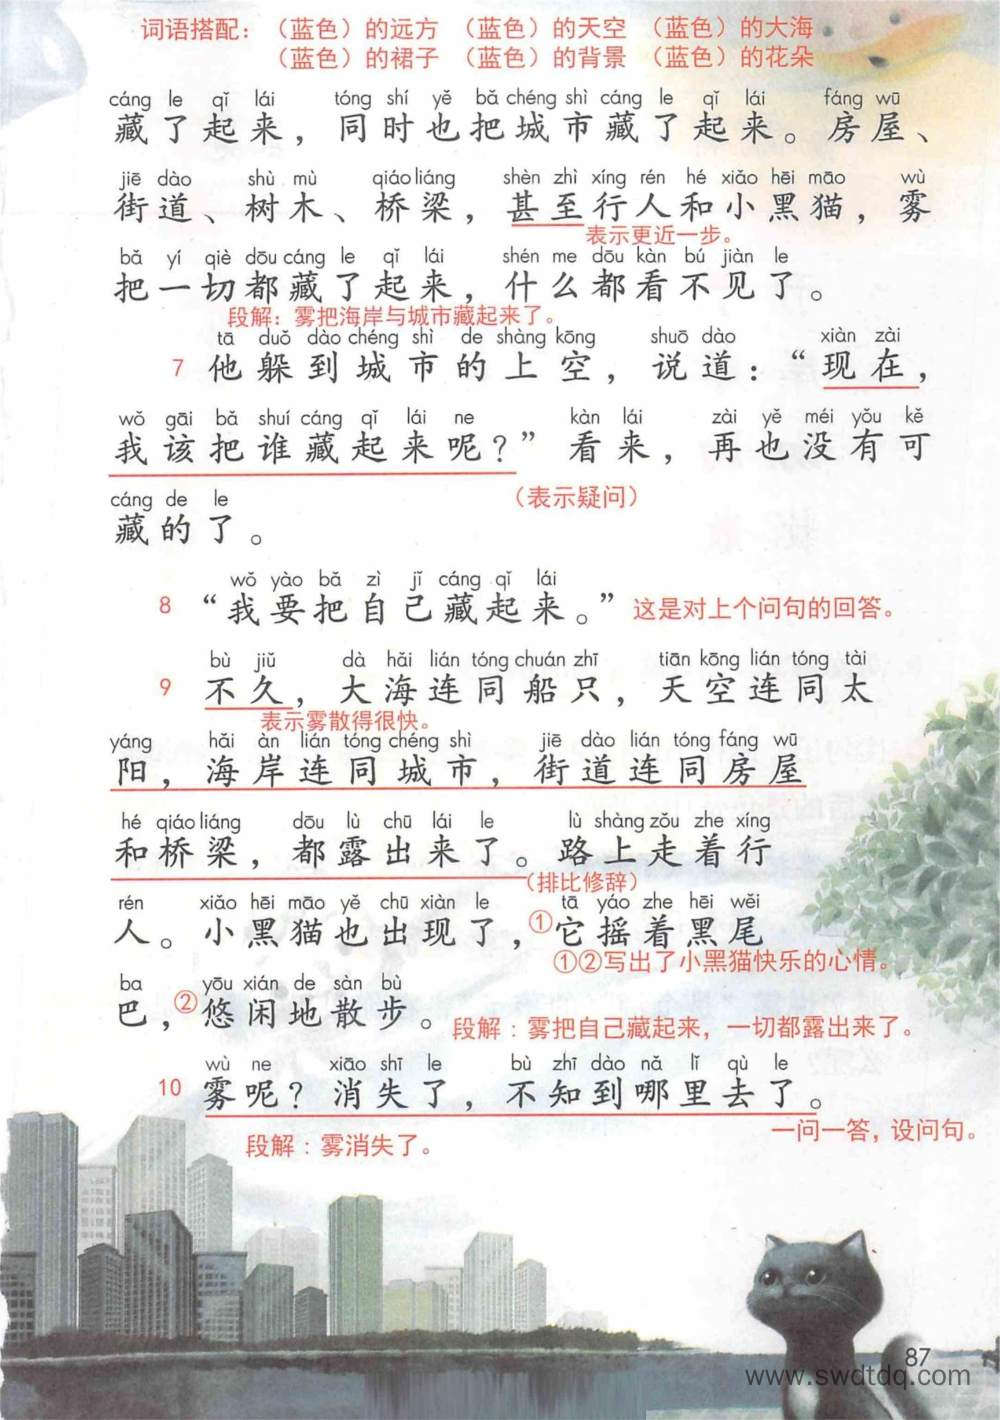 词语搭配：（蓝色）的远方 （蓝色）的天空 （蓝色）的大海
（蓝色）的裙子 （蓝色）的背景 （蓝色）的花朵
cáng le qǐ lái tóng shí yě bǎ chéng shì cáng le qǐ lái fáng wū
藏了起来，同时也把城市藏了起来。房屋、
jiē dào shù mù qiáo liáng shèn zhì xíng rén hé xiǎo hēi māo wù
街道、树木、桥梁，甚至行人和小黑猫，雾
表示更近一步。
bǎ yí qiè dōu cáng le qǐ lái shén me dōu kàn bú jiàn le
把一切都藏了起来，什么都看不见了。
段解：雾把海岸与城市藏起来了。
tā duǒ dào chéng shì de shàng kōng shuō dào xiàn zài
7 他躲到城市的上空，说道：“现在，
wǒ gāi bǎ shuí cáng qǐ lái ne kàn lái zài yě méi yǒu kě
我该把谁藏起来呢？”看来，再也没有可
（表示疑问）
cáng de le
藏的了。
wǒ yào bǎ zì jǐ cáng qǐ lái
8 “我要把自己藏起来。” 这是对上个问句的回答。
bù jiǔ dà hǎi lián tóng chuán zhī tiān kōng lián tóng tài
9 不久，大海连同船只，天空连同太
表示雾散得很快。
yáng hǎi àn lián tóng chéng shì jiē dào lián tóng fáng wū
阳，海岸连同城市，街道连同房屋
hé qiáo liáng dōu lù chū lái le lù shàng zǒu zhe xíng
和桥梁，都露出来了。路上走着行
（排比修辞）
rén xiǎo hēi māo yě chū xiàn le tā yáo zhe hēi wěi
人。小黑猫也出现了，①它摇着黑尾
①②写出了小黑猫快乐的心情。
ba yōu xián de sàn bù
巴，②悠闲地散步。
段解：雾把自己藏起来，一切都露出来了。
wù ne xiāo shī le bù zhī dào nǎ lǐ qù le
10 雾呢？消失了，不知到哪里去了。
一问一答，设问句。
段解：雾消失了。
87
www.swdtdq.com